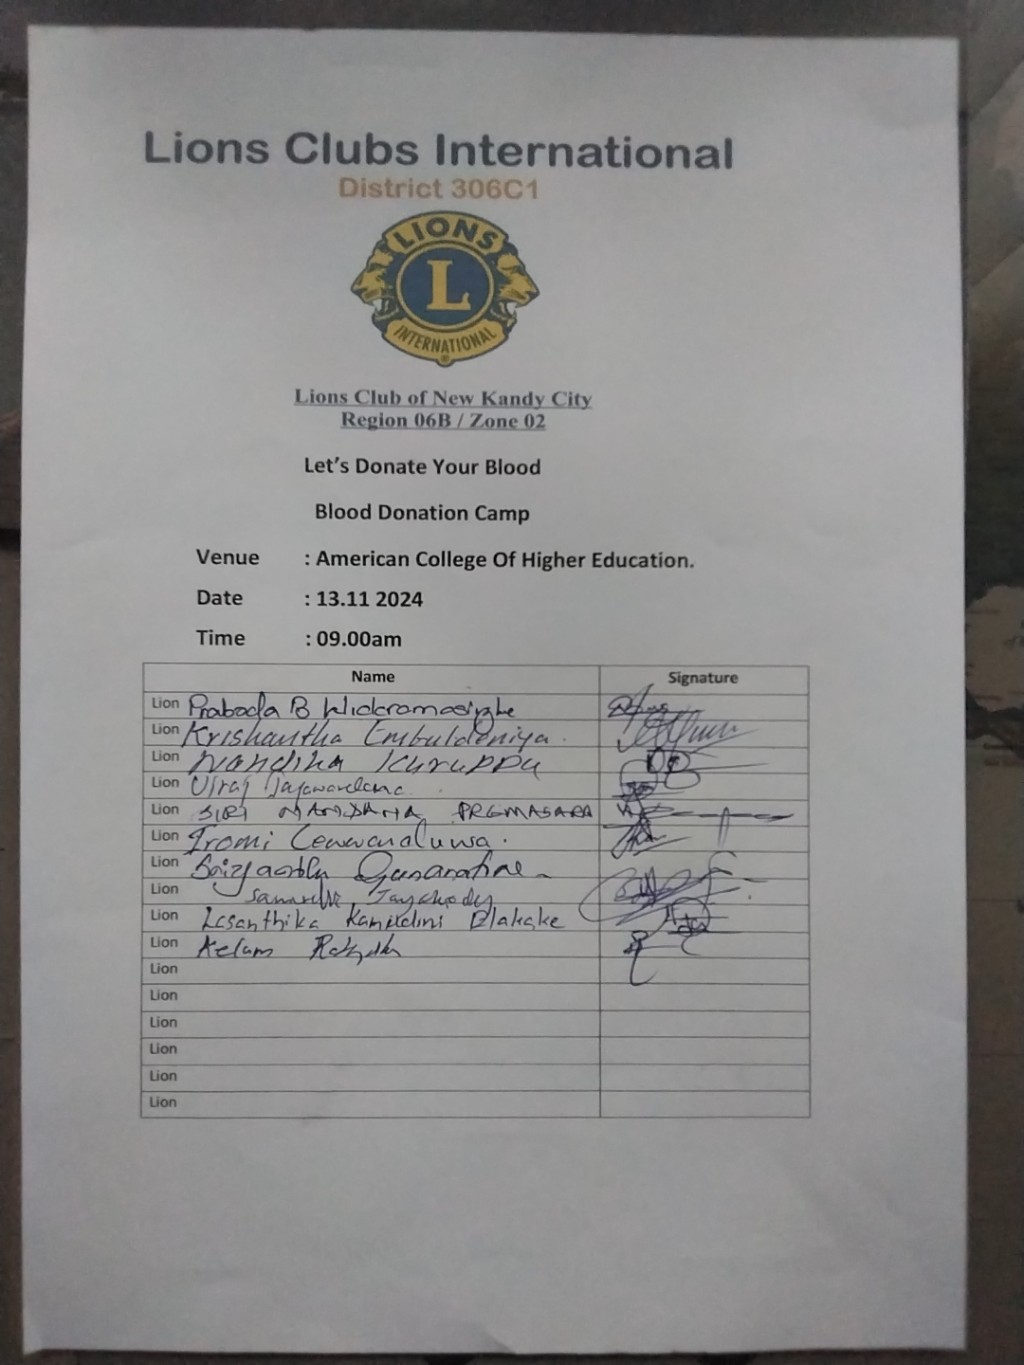 Lions Clubs International
District 306C1
LIONS
L
INTERNATIONAL
Lions Club of New Kandy City
Region 06B / Zone 02
Let's Donate Your Blood
Blood Donation Camp
Venue : American College Of Higher Education.
Date : 13.11 2024
Time : 09.00am
Name Signature
Lion Prabada B Wickramasinghe
Lion Krishantha Embuldeniya.
Lion Nandika Kuruppu
Lion Viraj Jayawardana
Lion SIRI NANDANA PREMASARA
Lion Iromi
Lion Gunaratne
Lion Jayakody
Lion Lasanthika
Lion
Lion
Lion
Lion
Lion
Lion
Lion